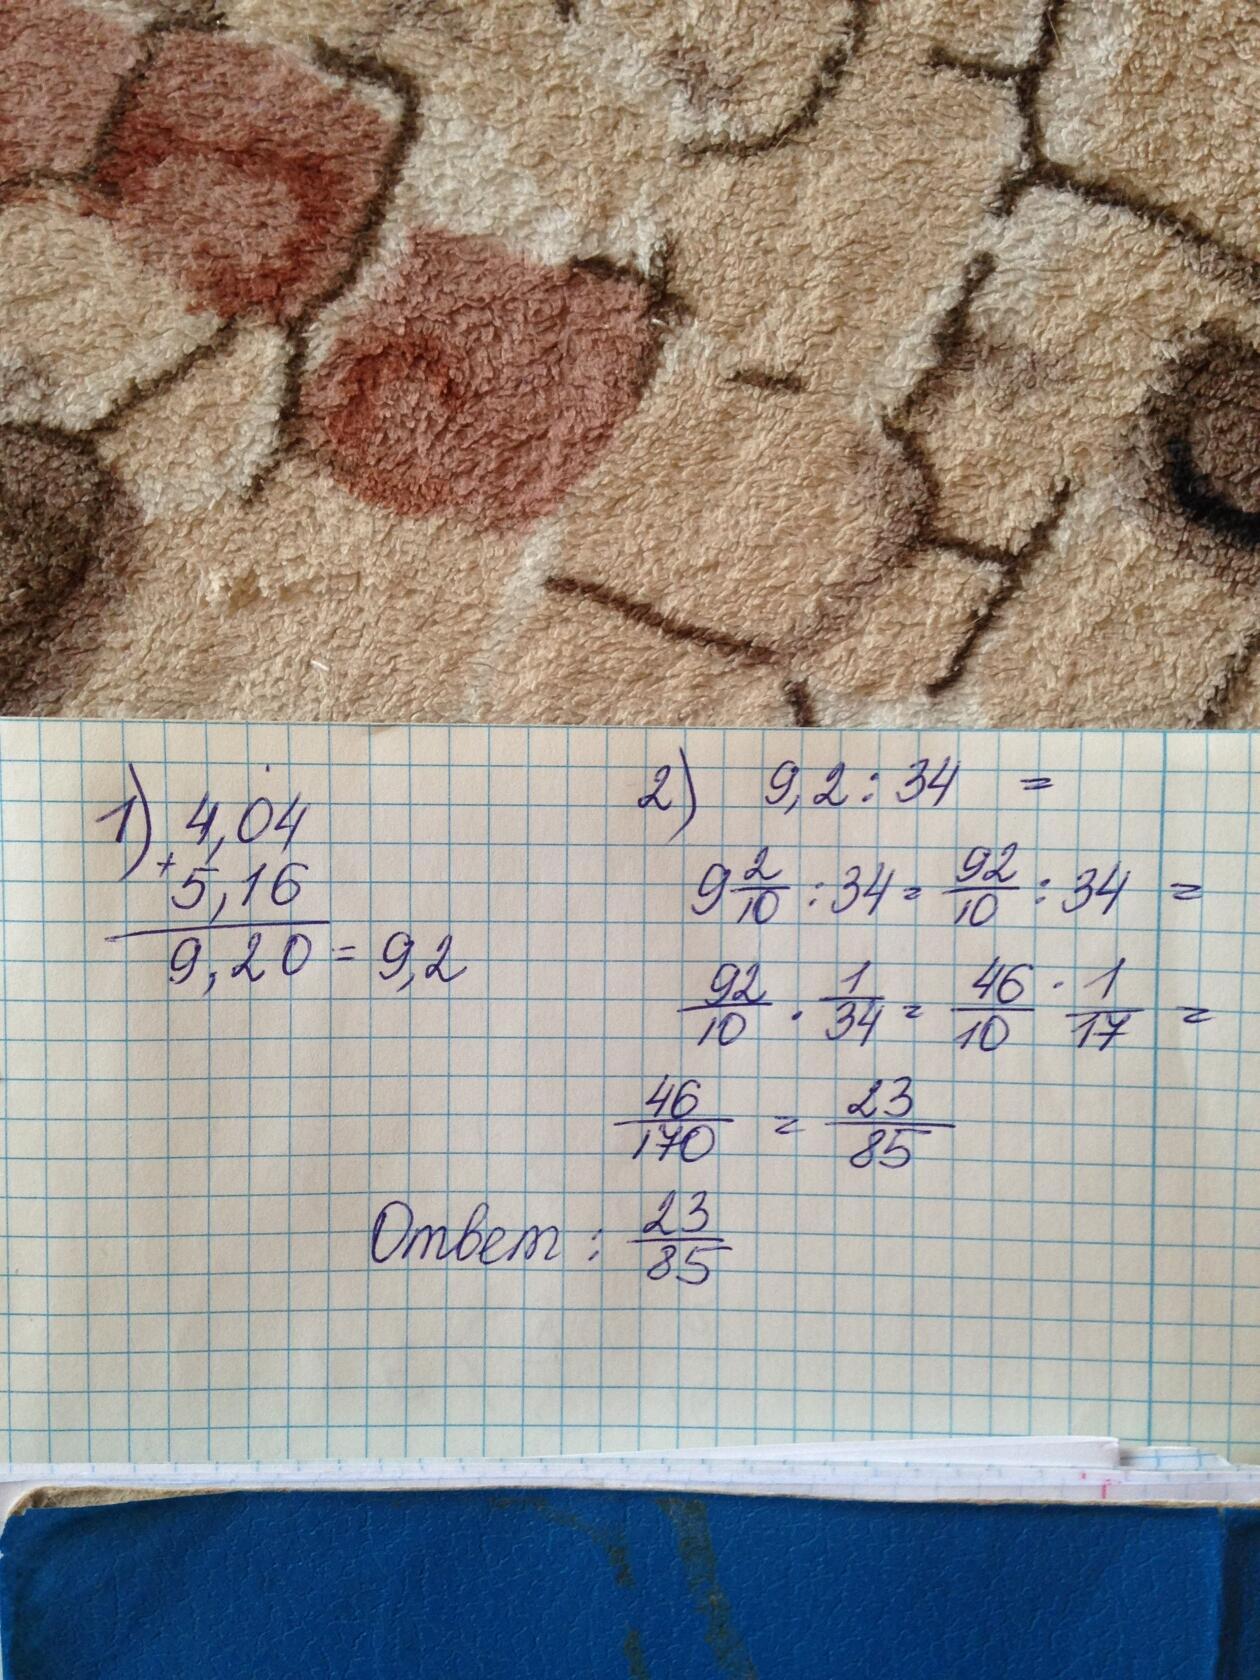 1) 4,04
+ 5,16
9,20 = 9,2
2) 9,2 : 34 =
9 2/10 : 34 = 92/10 : 34 =
92/10 · 1/34 = 46/10 · 1/17 =
46/170 = 23/85
Ответ : 23/85